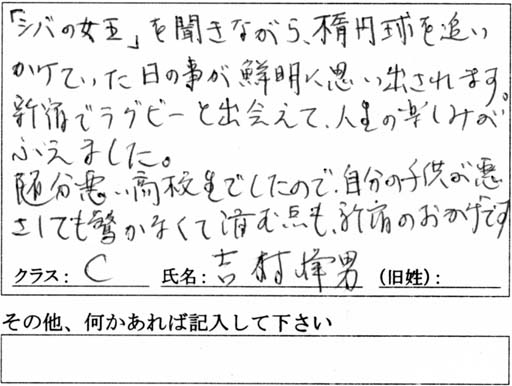 「シバの女王」を聞きながら、楕円球を追い
かけていた日の事が鮮明に思い出されます。
新宿でラグビーと出会えて、人生の楽しみが
ふえました。
随分悪い高校生でしたので、自分の子供が悪
さしても驚かなくて済む点も、新宿のおかげです
クラス： C 氏名： 吉村 男 （旧姓）：
その他、何かあれば記入して下さい